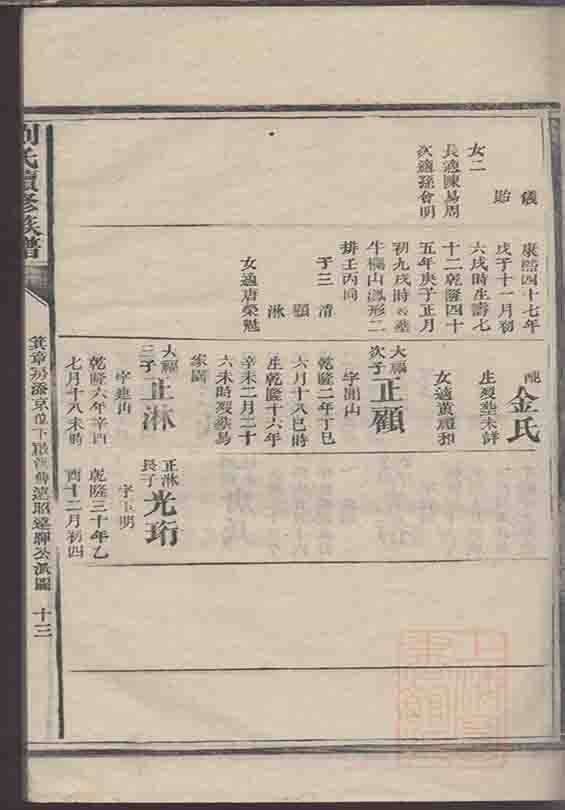 儀
貽
女二
長適陳易周
次適孫會明
康熙四十七年
戊子十一月初
六戌時生壽七
十二乾隆四十
五年庚子正月
初九戌時歿葬
牛欄山鳳形二
排壬丙向
子三 清
顧
淋
女適唐榮魁
配金氏
生歿葬未詳
女適黃禮和
大福次子正顧
乾隆二年丁巳
六月十八巳時
生乾隆十六年
辛未二月二十
六未時歿葬易
家園
大福三子正淋
字進山
乾隆六年辛酉
七月十八未時
正淋長子光珩
字玉明
乾隆三十年乙
酉十二月初四
劉氏續修族譜
十三